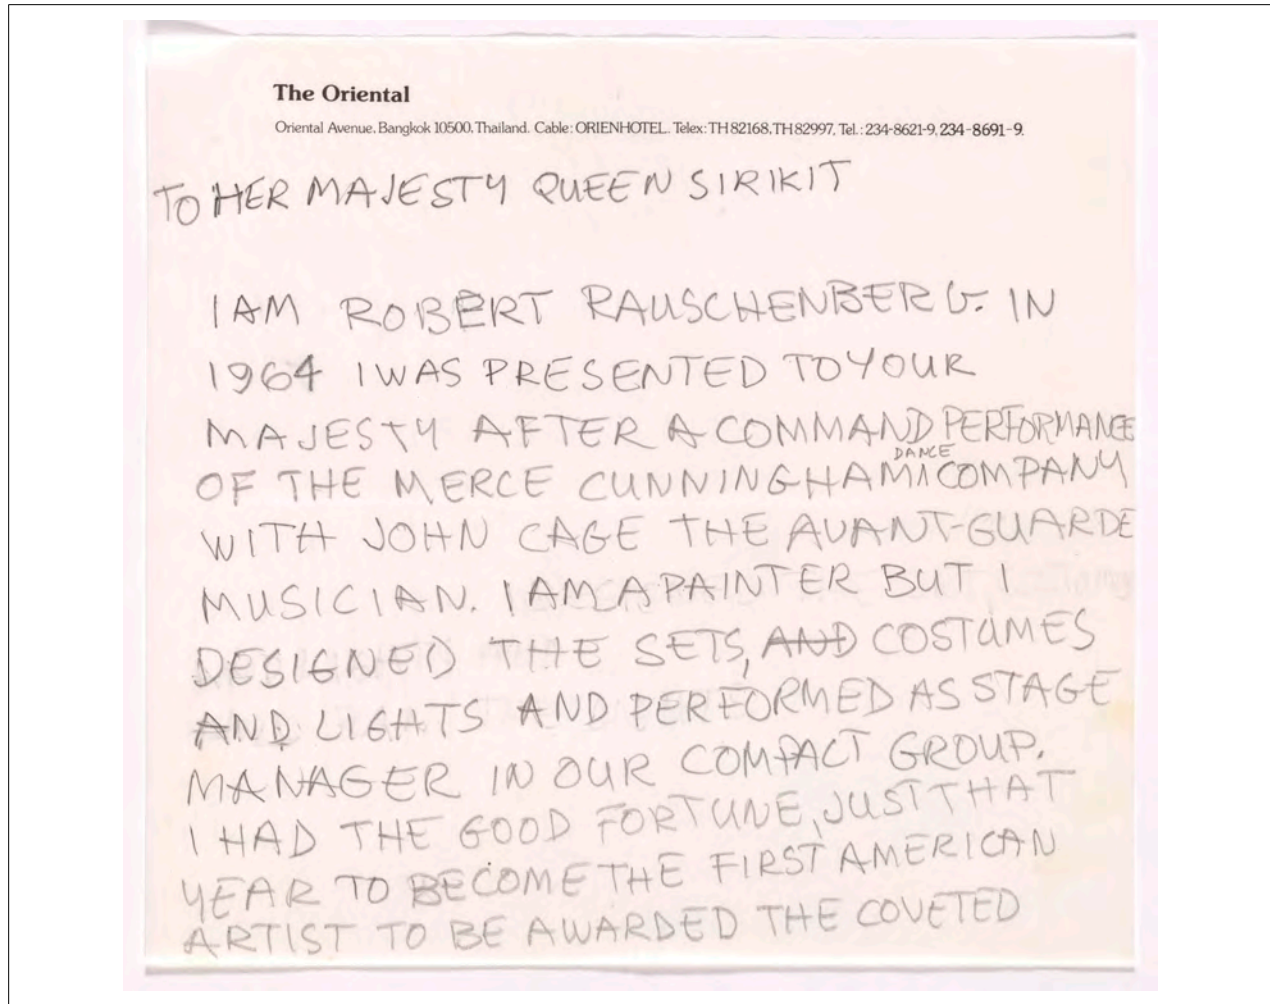 The Oriental
Oriental Avenue, Bangkok 10500, Thailand. Cable: ORIENHOTEL. Telex: TH 82168, TH 82997, Tel.: 234-8621-9, 234-8691-9.
TO HER MAJESTY QUEEN SIRIKIT
I AM ROBERT RAUSCHENBERG. IN
1964 I WAS PRESENTED TO YOUR
MAJESTY AFTER A COMMAND PERFORMANCE
OF THE MERCE CUNNINGHAM DANCE COMPANY
WITH JOHN CAGE THE AVANT-GUARDE
MUSICIAN. I AM A PAINTER BUT I
DESIGNED THE SETS, AND COSTUMES
AND LIGHTS AND PERFORMED AS STAGE
MANAGER IN OUR COMPACT GROUP.
I HAD THE GOOD FORTUNE, JUST THAT
YEAR TO BECOME THE FIRST AMERICAN
ARTIST TO BE AWARDED THE COVETED